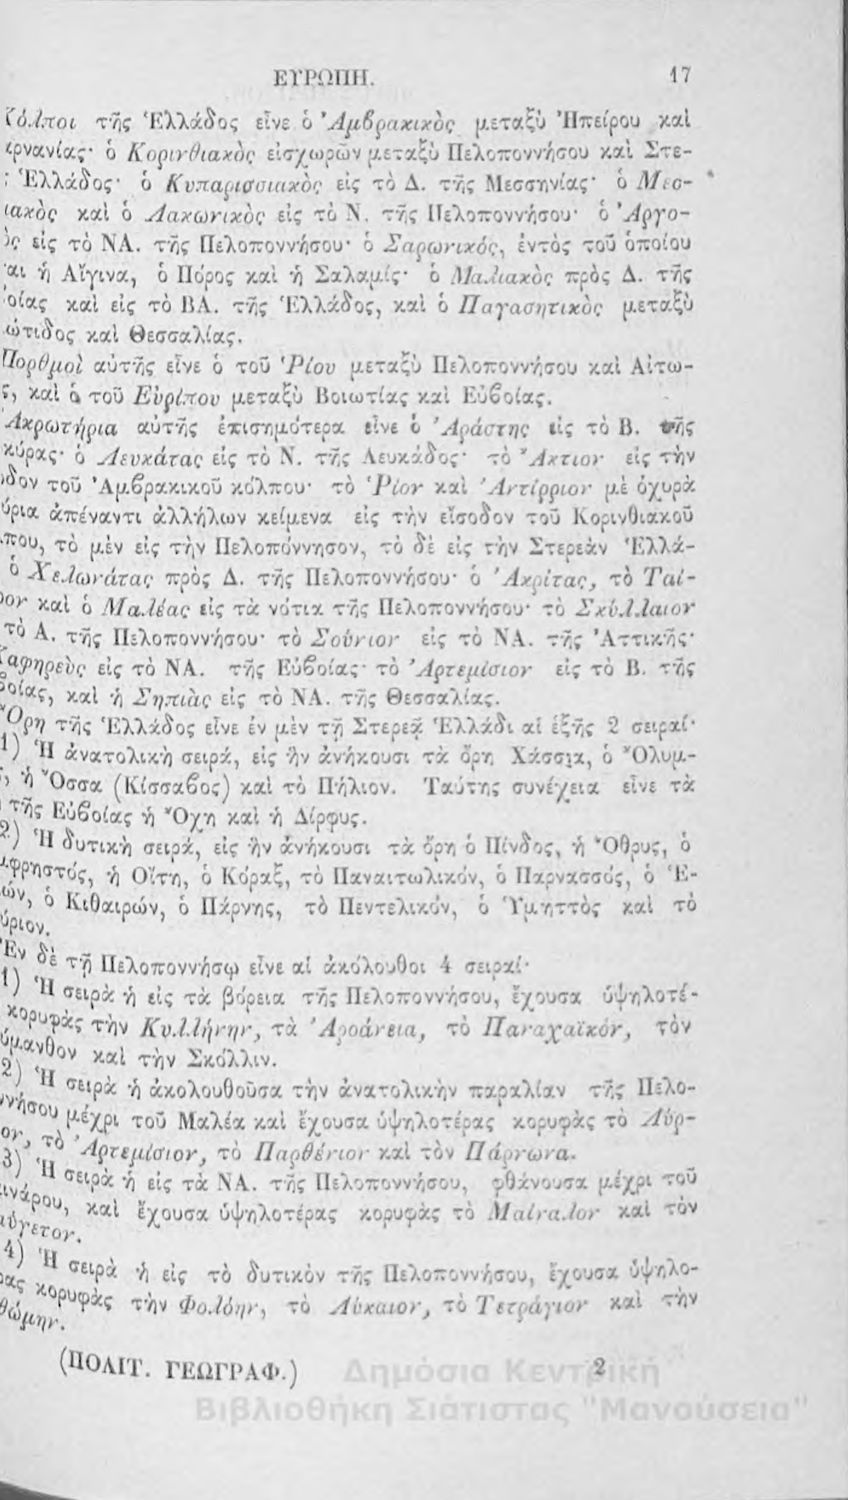 ΕΥΡΩΠΗ. 17
Κόλποι τῆς Ἑλλάδος εἶνε ὁ Ἀμβρακικὸς μεταξὺ Ἠπείρου καὶ
ερνανίας· ὁ Κορινθιακὸς εἰσχωρῶν μεταξὺ Πελοποννήσου καὶ Στε-
Ἑλλάδος· ὁ Κυπαρισσιακὸς εἰς τὸ Δ. τῆς Μεσσηνίας· ὁ Μεσ-
ιακὸς καὶ ὁ Λακωνικὸς εἰς τὸ Ν. τῆς Πελοποννήσου· ὁ Ἀργο-
ὸς εἰς τὸ ΝΑ. τῆς Πελοποννήσου· ὁ Σαρωνικός, ἐντὸς τοῦ ὁποίου
αι ἡ Αἴγινα, ὁ Πόρος καὶ ἡ Σαλαμίς· ὁ Μαλιακὸς πρὸς Δ. τῆς
οίας καὶ εἰς τὸ ΒΑ. τῆς Ἑλλάδος, καὶ ὁ Παγασητικὸς μεταξὺ
ώτιδος καὶ Θεσσαλίας.
Πορθμοὶ αὐτῆς εἶνε ὁ τοῦ Ῥίου μεταξὺ Πελοποννήσου καὶ Αἰτω-
ς, καὶ ὁ τοῦ Εὐρίπου μεταξὺ Βοιωτίας καὶ Εὐβοίας.
Ἀκρωτήρια αὐτῆς ἐπισημότερα εἶνε ὁ Ἀράστης εἰς τὸ Β. τῆς
κύρας· ὁ Λευκάτας εἰς τὸ Ν. τῆς Λευκάδος· τὸ Ἄκτιον εἰς τὴν
οδον τοῦ Ἀμβρακικοῦ κόλπου· τὸ Ῥίον καὶ Ἀντίρριον μὲ ὀχυρὰ
ύρια ἀπέναντι ἀλλήλων κείμενα εἰς τὴν εἴσοδον τοῦ Κορινθιακοῦ
που, τὸ μὲν εἰς τὴν Πελοπόννησον, τὸ δὲ εἰς τὴν Στερεὰν Ἑλλά-
ὁ Χελωνάτας πρὸς Δ. τῆς Πελοποννήσου· ὁ Ἀκρίτας, τὸ Ταί-
ρον καὶ ὁ Μαλέας εἰς τὰ νότια τῆς Πελοποννήσου· τὸ Σκύλλαιον
τὸ Α. τῆς Πελοποννήσου· τὸ Σούνιον εἰς τὸ ΝΑ. τῆς Ἀττικῆς·
Καφηρεὺς εἰς τὸ ΝΑ. τῆς Εὐβοίας· τὸ Ἀρτεμίσιον εἰς τὸ Β. τῆς
βοίας, καὶ ἡ Σηπιὰς εἰς τὸ ΝΑ. τῆς Θεσσαλίας.
Ὄρη τῆς Ἑλλάδος εἶνε ἐν μὲν τῇ Στερεᾷ Ἑλλάδι αἱ ἑξῆς 2 σειραί·
1) Ἡ ἀνατολικὴ σειρά, εἰς ἣν ἀνήκουσι τὰ ὄρη Χάσσια, ὁ Ὄλυμ-
ς, ἡ Ὄσσα (Κίσσαβος) καὶ τὸ Πήλιον. Ταύτης συνέχεια εἶνε τὰ
τῆς Εὐβοίας ἡ Ὄχη καὶ ἡ Δίρφυς.
2) Ἡ δυτικὴ σειρά, εἰς ἣν ἀνήκουσι τὰ ὄρη ὁ Πίνδος, ἡ Ὄθρυς, ὁ
μφρηστός, ἡ Οἴτη, ὁ Κόραξ, τὸ Παναιτωλικόν, ὁ Παρνασσός, ὁ Ἑ-
ών, ὁ Κιθαιρών, ὁ Πάρνης, τὸ Πεντελικόν, ὁ Ὑμηττὸς καὶ τὸ
ύριον.
Ἐν δὲ τῇ Πελοποννήσῳ εἶνε αἱ ἀκόλουθοι 4 σειραί·
1) Ἡ σειρὰ ἡ εἰς τὰ βόρεια τῆς Πελοποννήσου, ἔχουσα ὑψηλοτέ-
κορυφὰς τὴν Κυλλήνην, τὰ Ἀροάνεια, τὸ Παναχαϊκόν, τὸν
ύμανθον καὶ τὴν Σκόλλιν.
2) Ἡ σειρὰ ἡ ἀκολουθοῦσα τὴν ἀνατολικὴν παραλίαν τῆς Πελο-
ννήσου μέχρι τοῦ Μαλέα καὶ ἔχουσα ὑψηλοτέρας κορυφὰς τὸ Λύρ-
ον, τὸ Ἀρτεμίσιον, τὸ Παρθένιον καὶ τὸν Πάρνωνα.
3) Ἡ σειρὰ ἡ εἰς τὰ ΝΑ. τῆς Πελοποννήσου, φθάνουσα μέχρι τοῦ
ινάρου, καὶ ἔχουσα ὑψηλοτέρας κορυφὰς τὸ Μαίναλον καὶ τὸν
αΰγετον.
4) Ἡ σειρὰ ἡ εἰς τὸ δυτικὸν τῆς Πελοποννήσου, ἔχουσα ὑψηλο-
ρας κορυφὰς τὴν Φολόην, τὸ Λύκαιον, τὸ Τετράγιον καὶ τὴν
θώμην.
(ΠΟΛΙΤ. ΓΕΩΓΡΑΦ.) 2
Δημόσια Κεντρική
Βιβλιοθήκη Σιάτιστας "Μανούσεια"